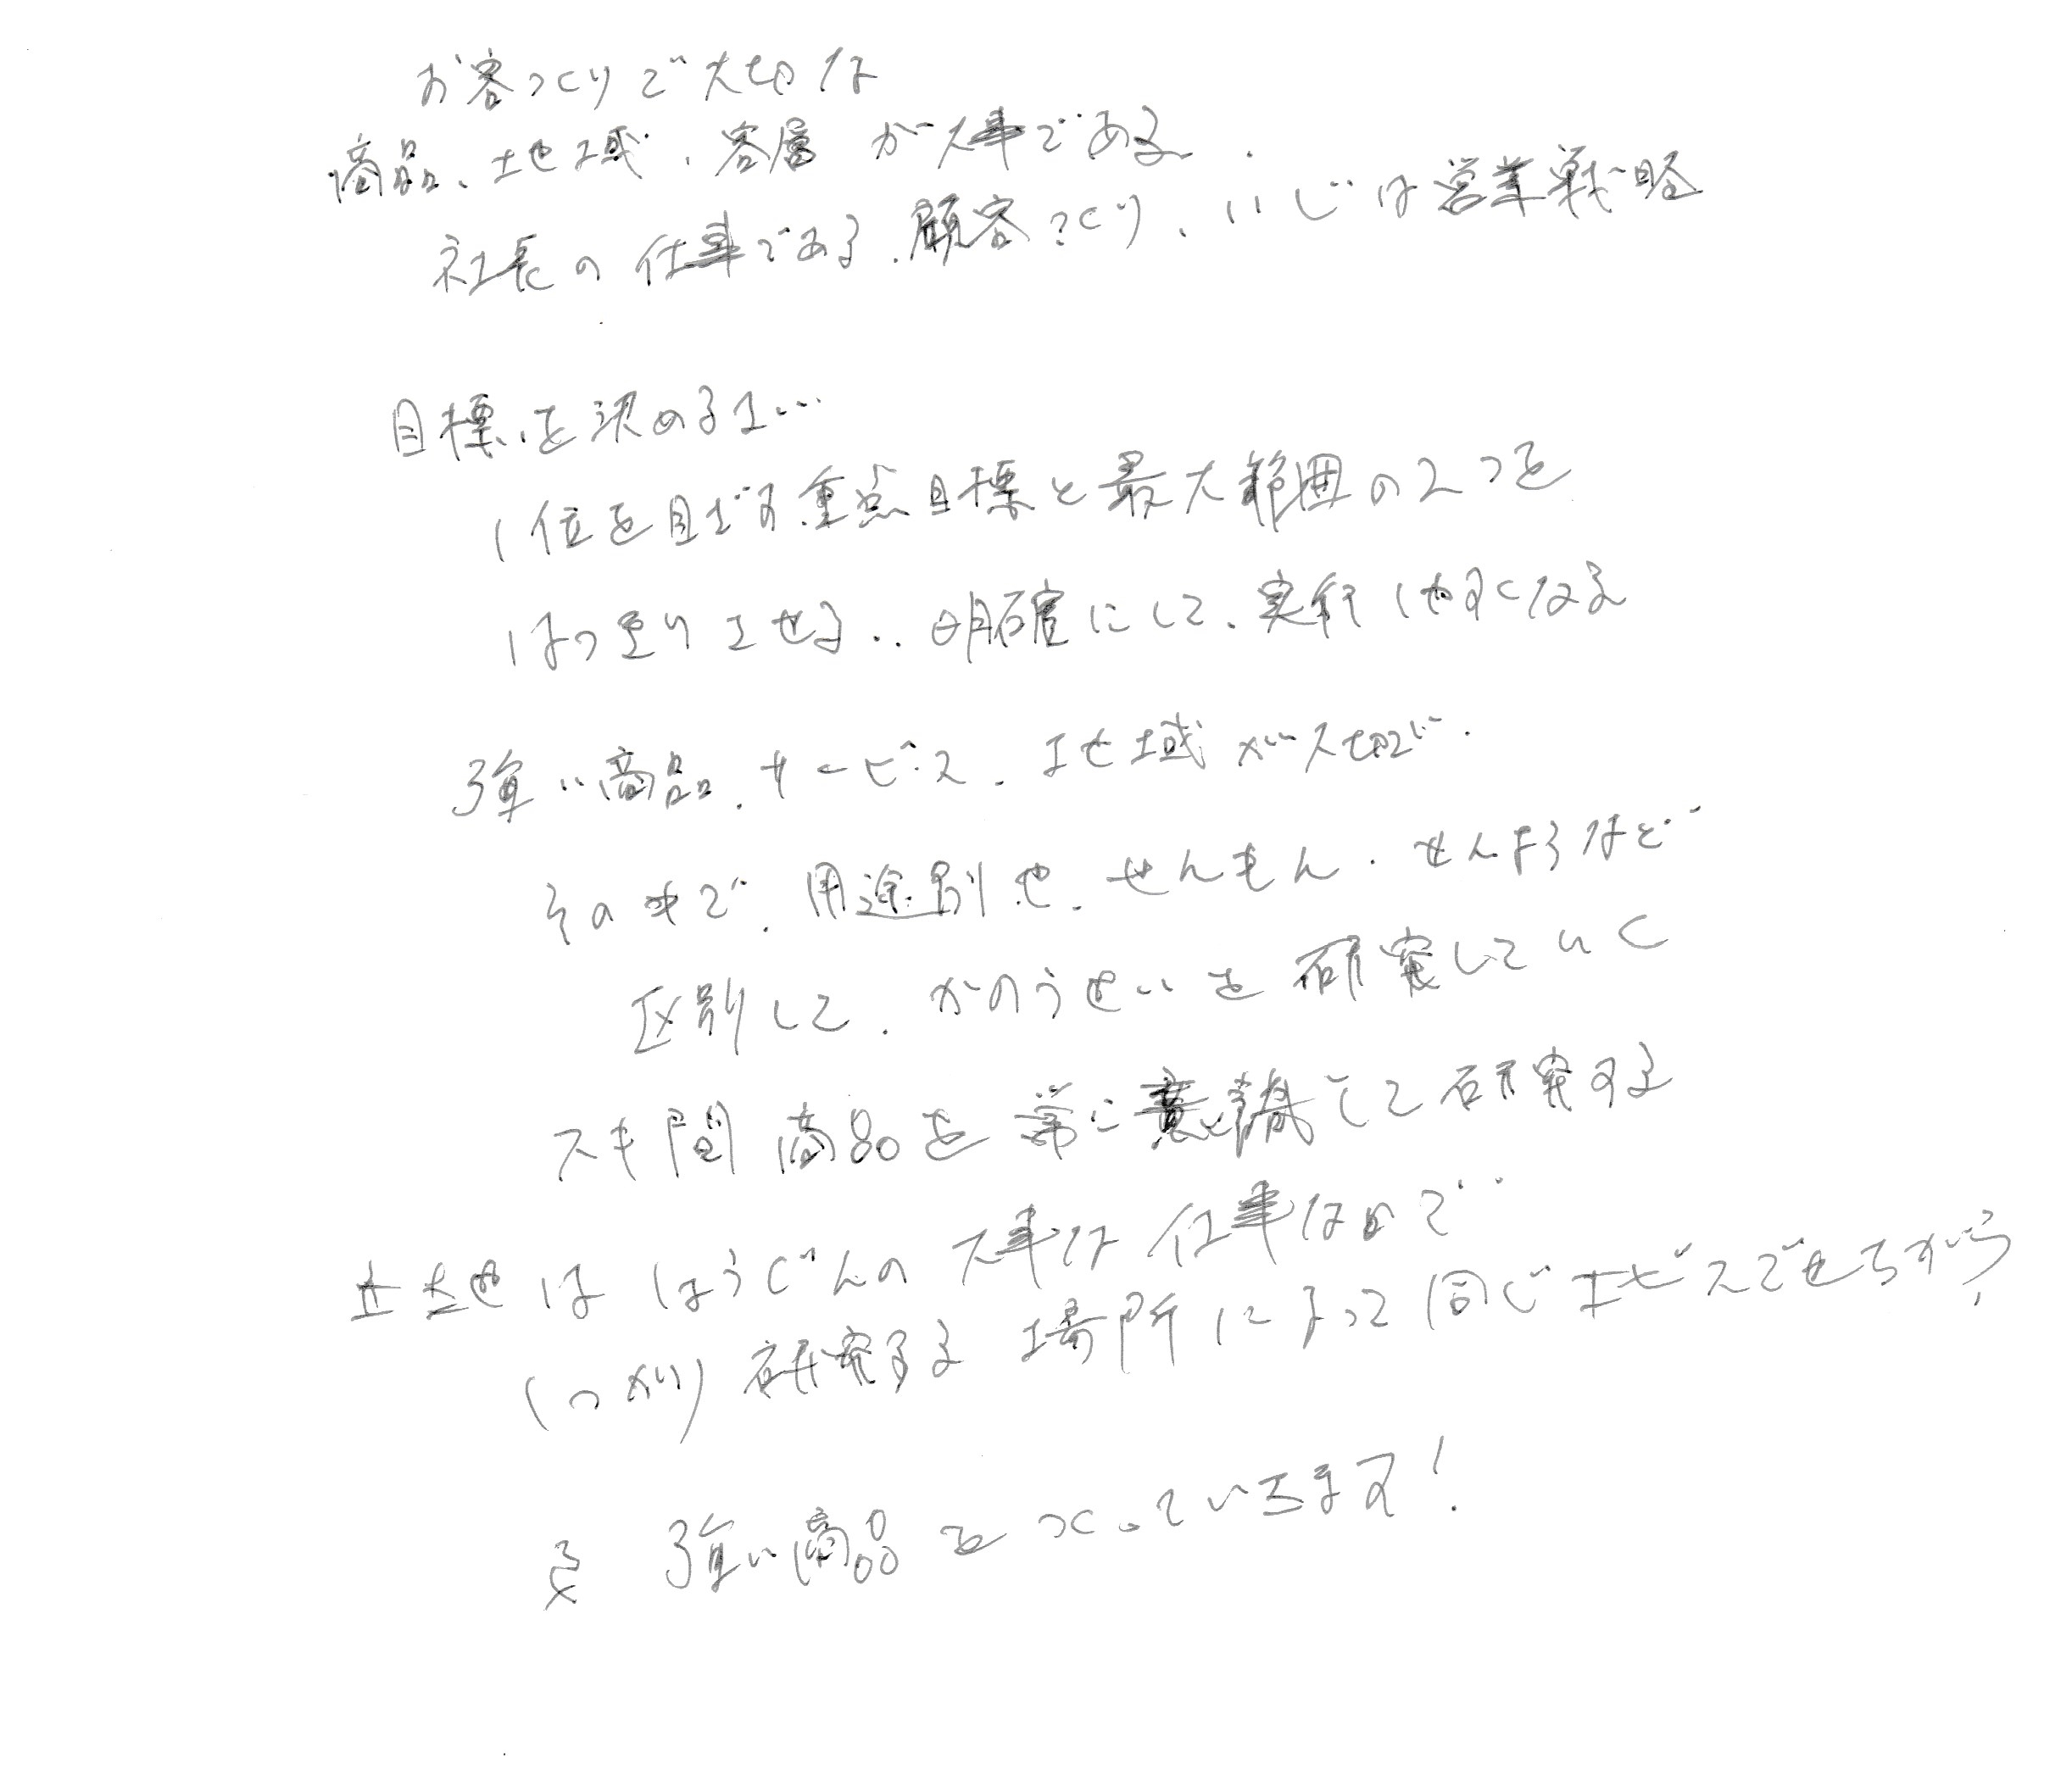 お客つくりで大切な
商品、地域、客層が大事である.
社長の仕事である.顧客つくり、いじは営業戦略
目標を決める
1位を目ざす重点目標と最大範囲の2つを
はっきりさせる..明確にして、実行しやすくなる
強い商品.サービス.地域が大切で.
その中で.用途別や.せんもん.せんようなど
区別して.かのうせいを研究していく
スキ間商品を常に意識して研究する
土地はほうじんの大事な仕事なので
しっかり研究する場所によって同じ
強い商品をつくっていきます!